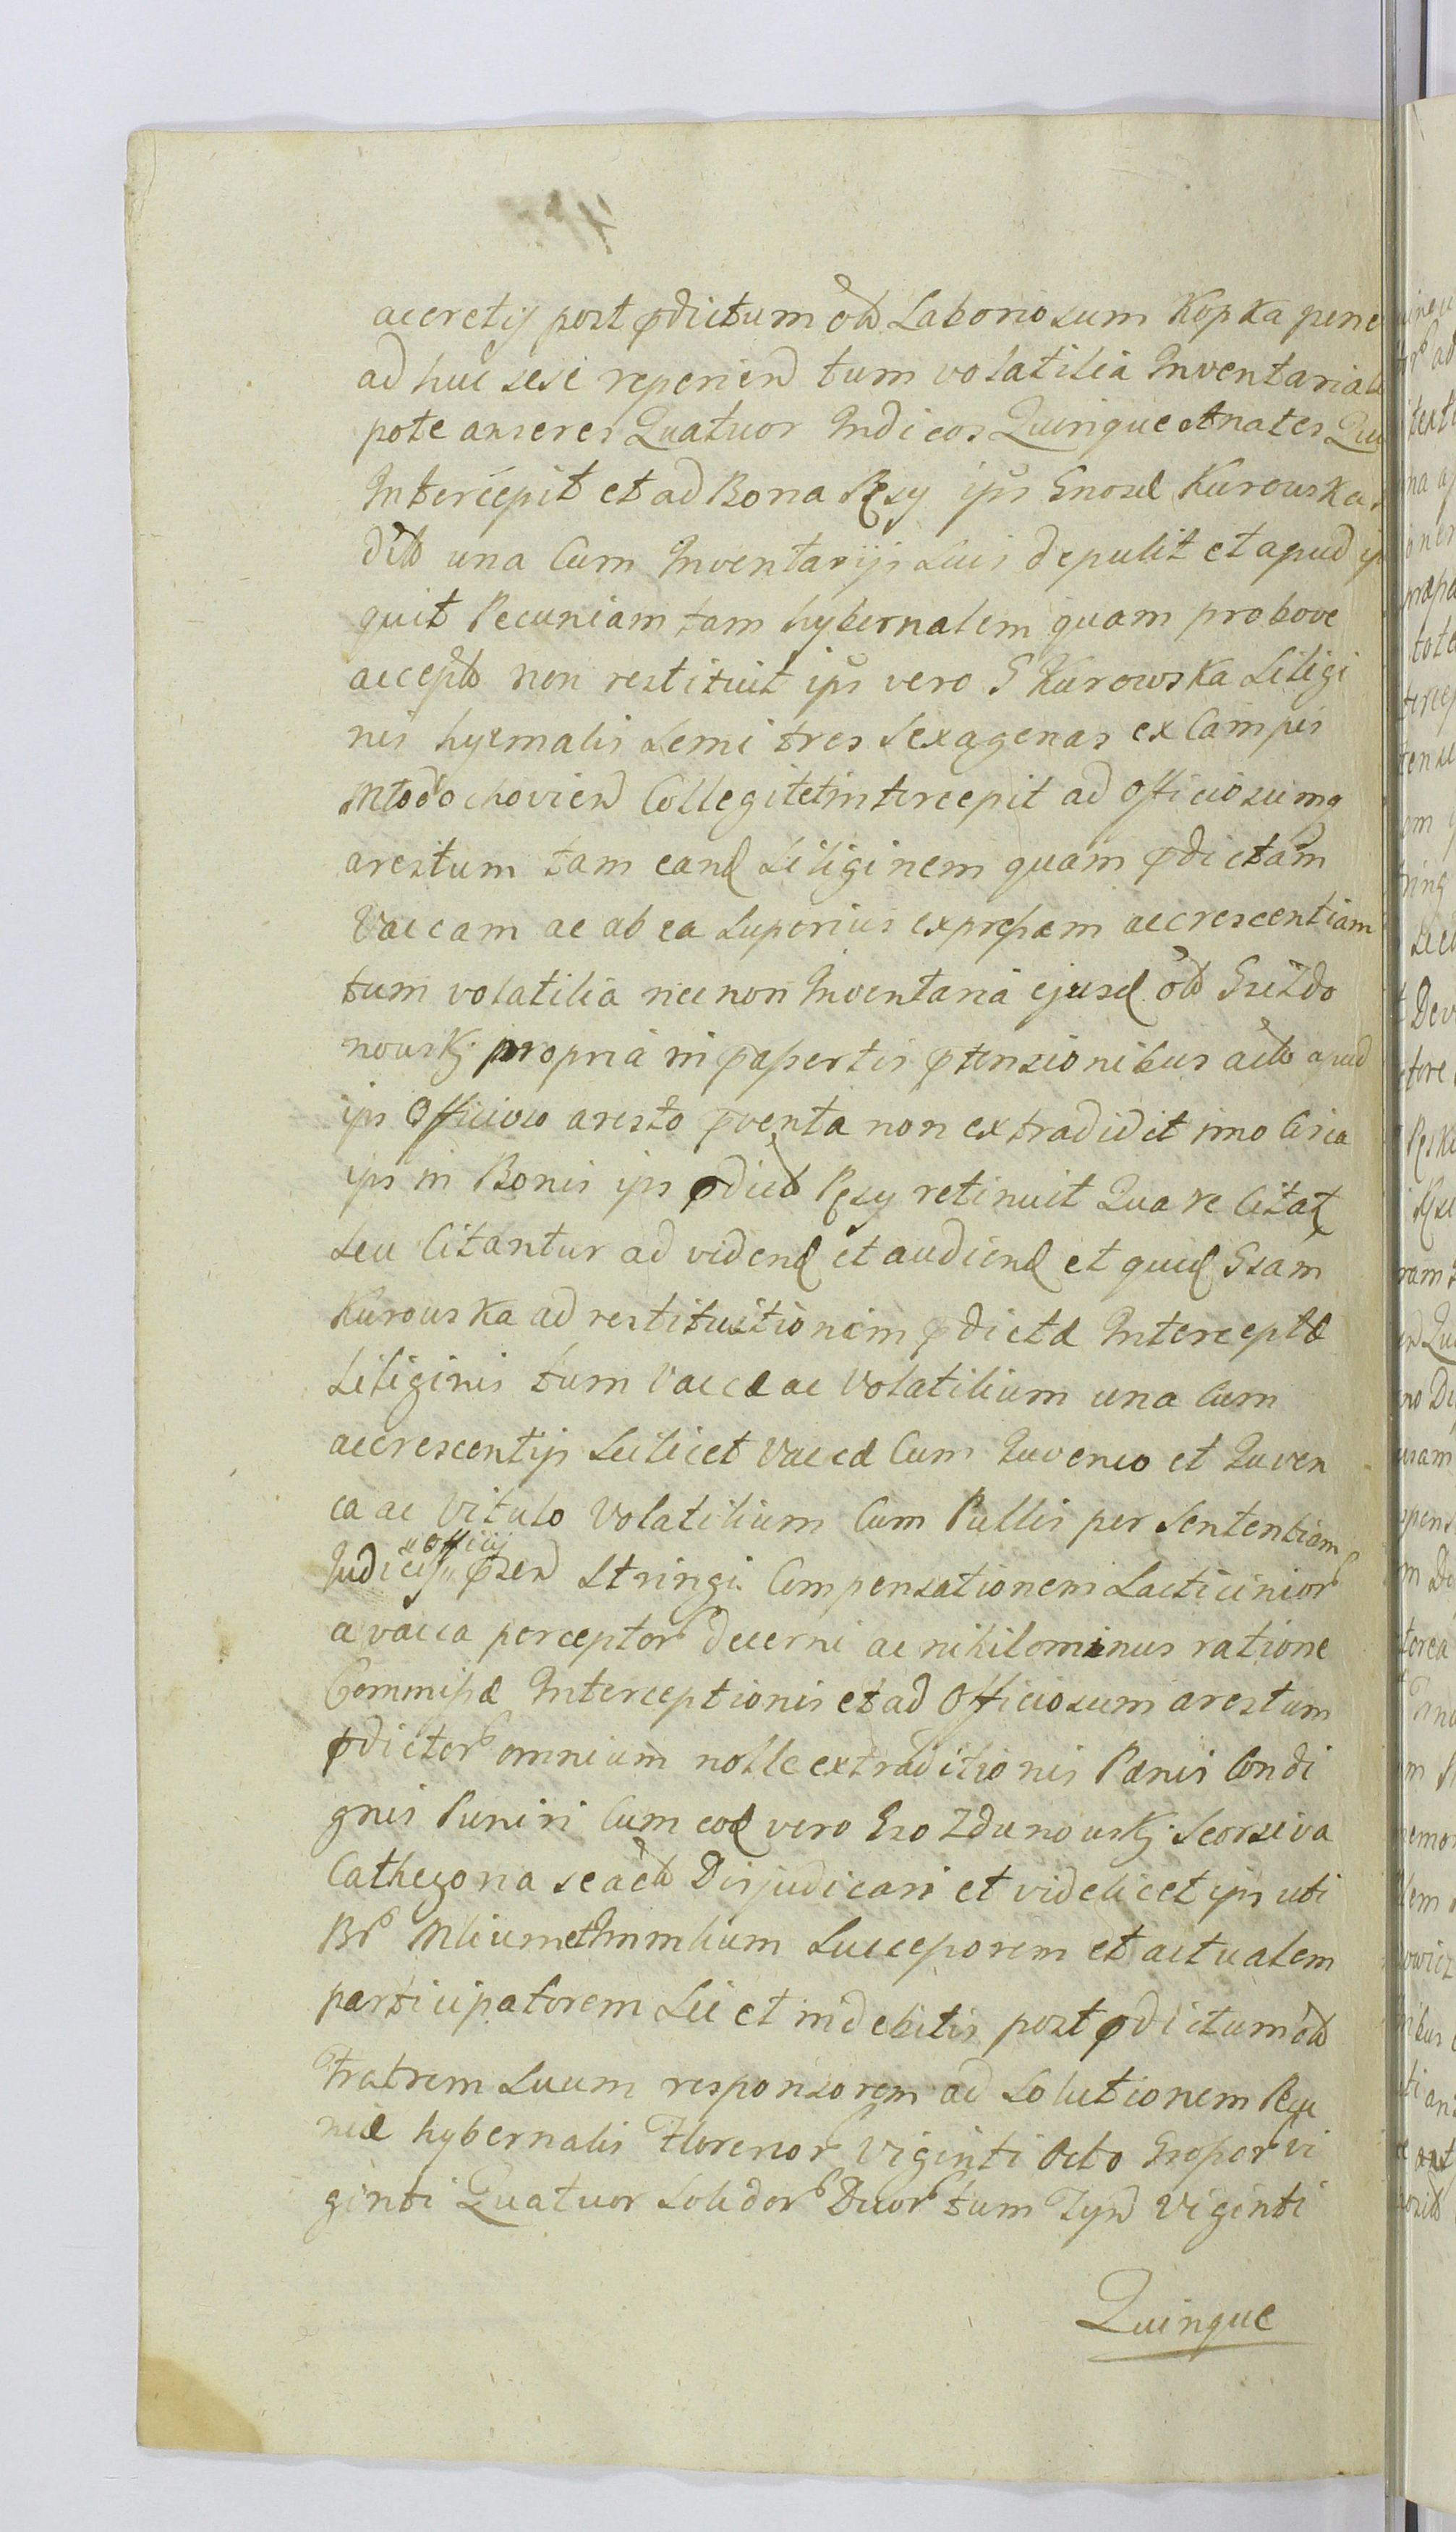 accretis post pdictum ołd Laboriosum Kopka pene
ad huc sese reperiend tum volatilia Inventaria
pote anseres Quatuor Indicos Quinque Anates Qu
Intercepit et ad Bona Pęsy ips Gnosd Kurowska
una Cum Inventarijs suis depulit et apud
quit Pecuniam tam hybernalem quam pro bove
accept non restituit ips vero G Kurowska Siligi
nis hyemalis semi tres sexagenas ex Campis
Młodochoviend Collegit et intercepit ad Officiosumq
arestum tam eand Siliginem quam pdictam
Vaccam ac ab ea superius expressam accrescentiam
tum volatilia nec non Inventaria ejusd ołd Gsi Zdo
nowskj propria in passertis ptensionibus apud
ips Officioso aresto pventa non extradidit imo Circa
ips in Bonis ips pdict Pęsy retinuit Qua re Citat
seu Citantur ad vidend et audiend et quid Gsam
Kurowska ad restituitionem pdictæ Interceptæ
Siliginis tum Vaccæ ac Volatilium una Cum
accrescentijs scilicet Vaccæ Cum Juvenco et Juven
ca ac Vitulo Volatilium Cum Pullis per Sententiam
Judicij Officij psend stringi Compensationem Lacticinior
a vacca perceptor decerni ac nihilominus ratione
Commissæ Interceptionis et ad Officiosum arestum
pdictor omnium nolle extraditionis Pænis Condi
gnis Puniri Cum eod vero Gso Zdunowskj Seorsiva
Cathegoria se Disjudicari et videlicet ips uti
Br Mlium et Immlium Successorem et actualem
participatorem Sic et in debitis post pdictum ołd
Fratrem suum responsorem ad Solutionem Pecu
niæ hybernalis Florenor Viginti Octo Grosor vi
ginti Quatuor Solidor Duor tum Tynd Viginti
Quinque